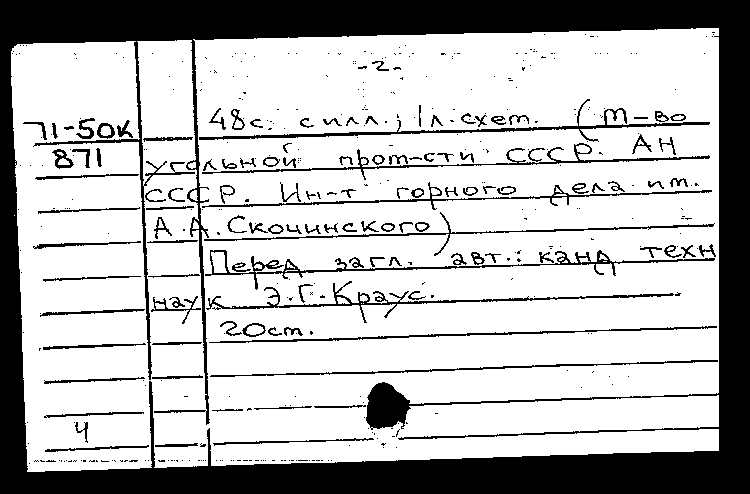 -2-
71-50к 48с. с илл.; 1л. схем. (М-во
871 угольной пром-сти СССР. АН
СССР. Ин-т горного дела им.
А.А. Скочинского)
Перед загл. авт.: канд техн
наук Э.Г. Краус.
20ст.
4